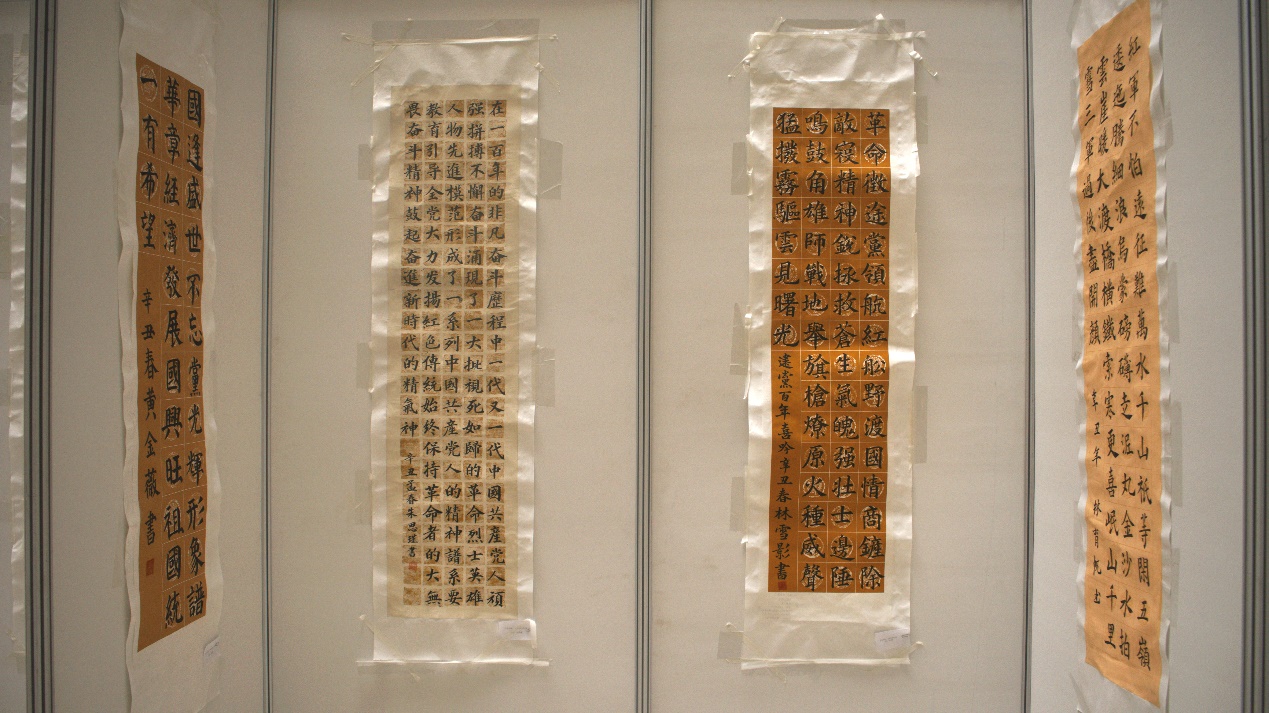 國逢盛世不忘黨光輝形象譜
華章經濟發展國興旺祖國統
一有希望 辛丑春黄金薇書
在一百年的非凡奋斗歷程中一代又一代中國共產党人頑
强拼搏不懈奋斗涌現了一大批視死如歸的革命烈士英雄
人物先進模范形成了一系列中國共產党人的精神譜系要
教育引导全党大力发揚紅色傳統始终保持革命者的大無
畏奋斗精神鼓起奋進新時代的精氣神 辛丑孟春朱思書
革命徵途黨領航紅船野渡國情商鏟除
敵寇精神銳拯救蒼生氣魄强壯士邊陲
鳴鼓角雄師戰地舉旗槍燎原火種威聲
猛撥霧驅雲見曙光 建黨百年喜吟辛丑春林雪影書
紅軍不怕遠征難萬水千山衹等閑五嶺
逶迤騰細浪烏蒙磅礴走泥丸金沙水拍
雲崖暖大渡橋橫鐵索寒更喜岷山千里
雪三軍過後盡開顏 辛丑年 林育